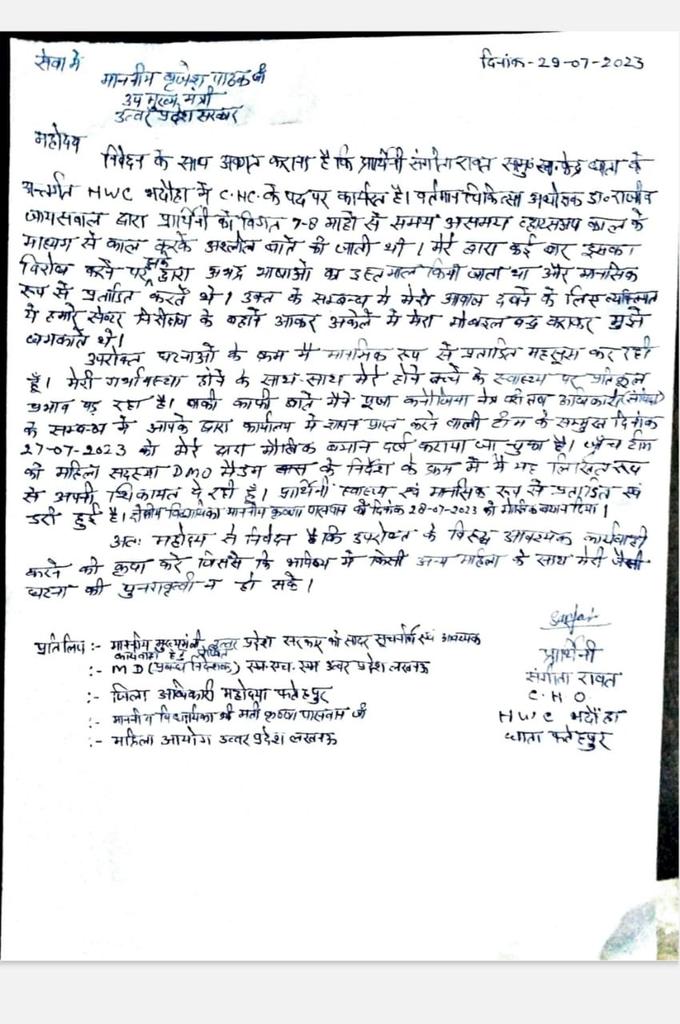 सेवा में
दिनांक-29-07-2023
माननीय बृजेश पाठक जी
उप मुख्य मंत्री
उत्तर प्रदेश सरकार
महोदय
निवेदन के साथ अवगत कराना है कि प्रार्थिनी संगीता रावत के
अन्तर्गत HWC भदौहा में C.H.C. के पद पर कार्यरत है। वर्तमान चिकित्सा अधीक्षक डा० राजीव
जायसवाल द्वारा प्रार्थिनी को विगत 7-8 माहो से समय असमय व्हाट्सअप काल के
माध्यम से काल करके अश्लील बाते की जाती थी। मेरे द्वारा कई बार इसका
विरोध करने पर इनके द्वारा अभद्र भाषाओं का इस्तमाल किया जाता था और मानसिक
रूप से प्रताडित करते थे। उक्त के सम्बन्ध में मेरी आवाज दबाने के लिए व्यक्तिगत
में हमारे सेन्टर निरीक्षण के बहाने आकर अकेले में मेरा मोबाइल बन्द कराकर मुझे
धमकाते थे।
उपरोक्त घटनाओं के क्रम में मानसिक रूप से प्रताडित महसूस कर रही
हूँ। मेरी गर्भावस्था होने के साथ-साथ मेरे होने बच्चे के स्वास्थ्य पर प्रतिकूल
प्रभाव पड़ रहा है। बाकी काफी बाते मैने
के सम्बन्ध में आपके द्वारा कार्यालय में प्राप्त करने वाली टीम के सम्मुख दिनांक
27-07-2023 को मेरे द्वारा मौखिक बयान दर्ज कराया जा चुका है। जाँच टीम
की महिला सदस्या DMO मैडम के निर्देश के क्रम में मै यह लिखित रूप
से अपनी शिकायत दे रही हूँ। प्रार्थिनी स्वास्थ्य एवं मानसिक रूप से प्रताडित एवं
डरी हुई है। क्षेत्रीय विधायिका माननीय कृष्णा पासवान को दिनांक 28-07-2023 को मौखिक बयान दिया।
अतः महोदय से निवेदन है कि उपरोक्त के विरूद्ध आवश्यक कार्यवाही
करने की कृपा करे जिससे कि भविष्य में किसी अन्य महिला के साथ मेरी जैसी
घटना की पुनरावृत्ती न हो सके।
प्रतिलिपि :- माननीय मुख्यमंत्री उत्तर प्रदेश सरकार को सादर सूचनार्थ एवं आवश्यक
कार्यवाही हेतु प्रेषित
:- MD (प्रबन्ध निदेशक) एम.एच.एम उत्तर प्रदेश लखनऊ
:- जिला अधिकारी महोदया फतेहपुर
:- माननीय विधायिका श्री मती कृष्णा पासवान जी
:- महिला आयोग उत्तर प्रदेश लखनऊ
प्रार्थिनी
संगीता रावत
C.H.O.
HWC भदौहा
धाता फतेहपुर